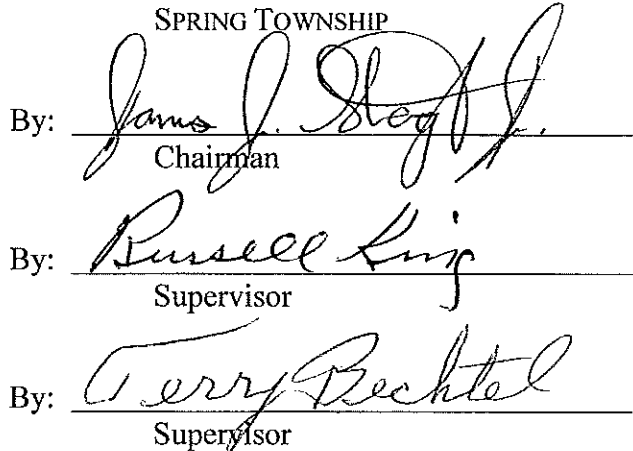 SPRING TOWNSHIP
By: James J. J.
Chairman
By: Russell King
Supervisor
By: Terry Bechtel
Supervisor